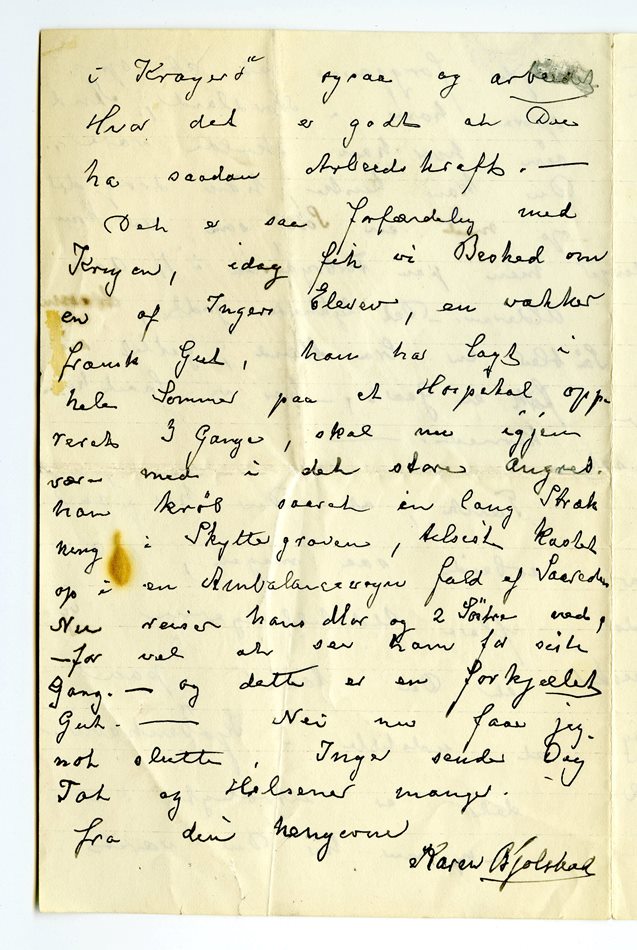 i Kragerö ogsaa og arbeide
Hvor det er godt at Du
ha saadan Arbeidskraft. —
Det er saa forfærdelig med
Krigen, idag fik vi Besked om
en af Ingers Elever, en vakker
fransk Gut, han har lagt i
hele Sommer paa et Hospital oppe-
rerets 3 Gange, skal nu igjen
være med i det store Angreb.
han krøb saaret en lang Stræk
ning i Skyttegraven, tilsist kastet
op i en Ambulancevogn fuld af Saarede
Nu reiser hans Mor og 2 Söstre ned,
— for vel at se ham for siste
Gang. — og dette er en forkjælet
Gut. — Nei nu faar jeg
nok slutte, Inger sender Dig
Tak og Hilsener mange.
fra din hengivne
Karen Bjølstad